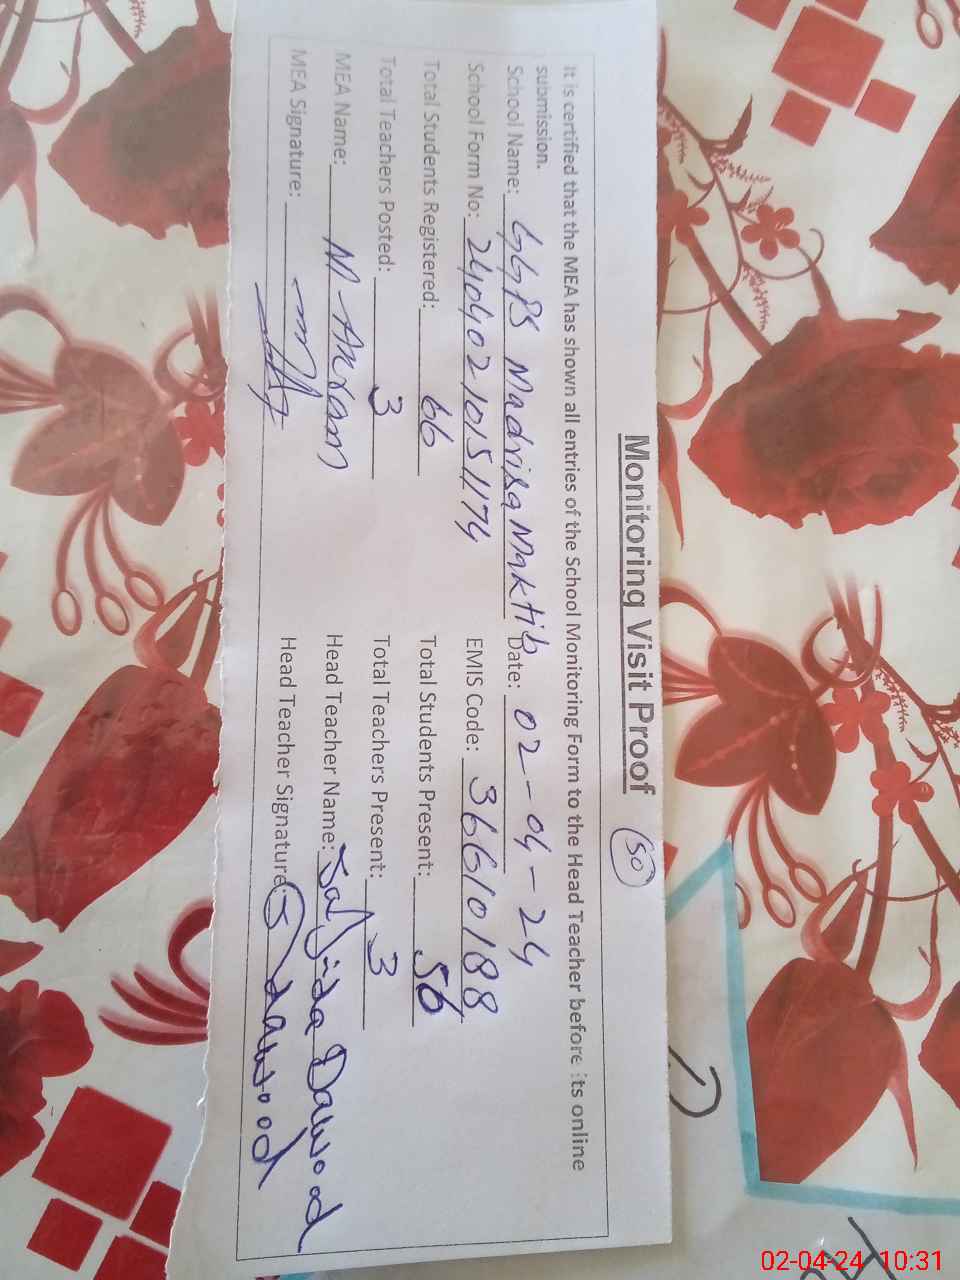 Monitoring Visit Proof 50
It is certified that the MEA has shown all entries of the School Monitoring Form to the Head Teacher before its online
submission.
School Name: GGPS Madrisa Maktib Date: 02-04-24
School Form No: 24040210151174 EMIS Code: 36610188
Total Students Registered: 66 Total Students Present: 56
Total Teachers Posted: 3 Total Teachers Present: 3
MEA Name: M Akram Head Teacher Name: Sajida Dawood
MEA Signature: Head Teacher Signature: S Dawood
02-04-24 10:31